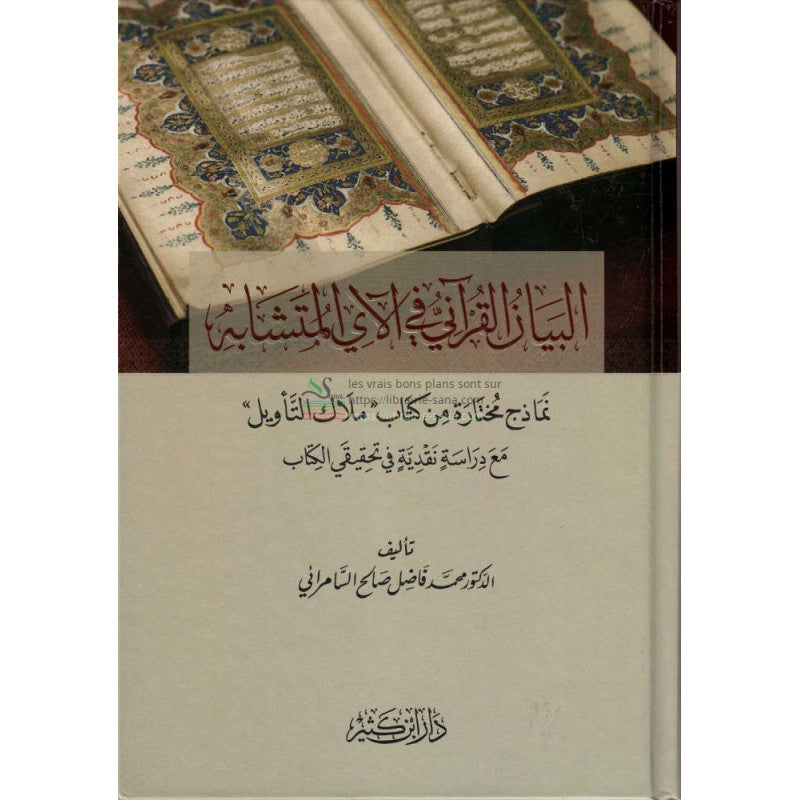 البيان القرآنيُّ في الآي المُتَشَابِهِ
les vrais bons plans sont sur
https://librairie-sana.com
نَمَاذِج مُخْتَارَة مِن كِتَاب "مِلَاك التَّأوِيل"
مَعَ دِرَاسَةٍ نَقْدِيَّةٍ في تَحقِيقَي الكِتَاب
تأليف
الدّكتور محمّد فَاضِل صَالِح السَّامرائي
دَار ابْن كَثِير